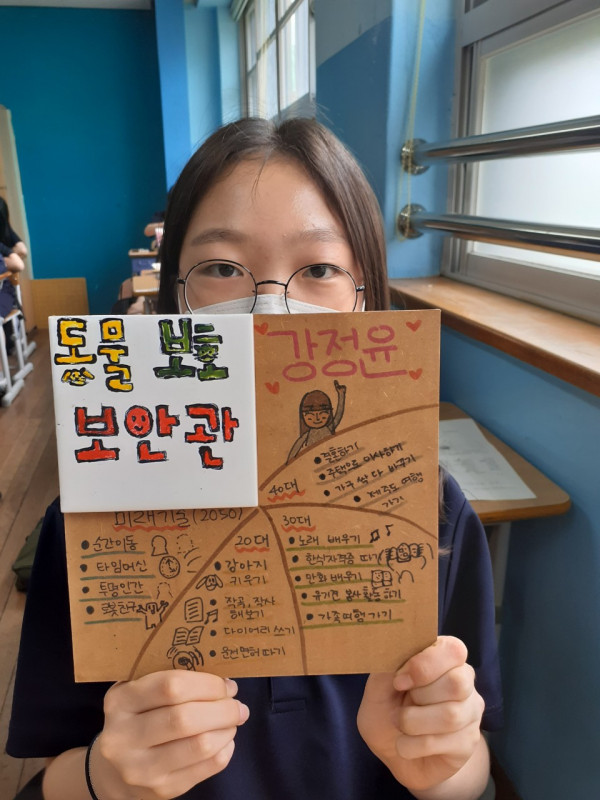 동물 보호
보안관
강정윤
40대
• 결혼하기
• 주택으로 이사하기
• 가구 싹 다 바꾸기
• 제주도 여행
가기
미래기술(2050)
• 순간이동
• 타임머신
• 투명인간
• 로봇친구
20대
• 강아지
키우기
• 작곡, 작사
해보기
• 다이어리 쓰기
• 운전면허 따기
30대
• 노래 배우기
• 한식자격증 따기
• 만화 배우기
• 유기견 봉사활동 하기
• 가족여행 가기